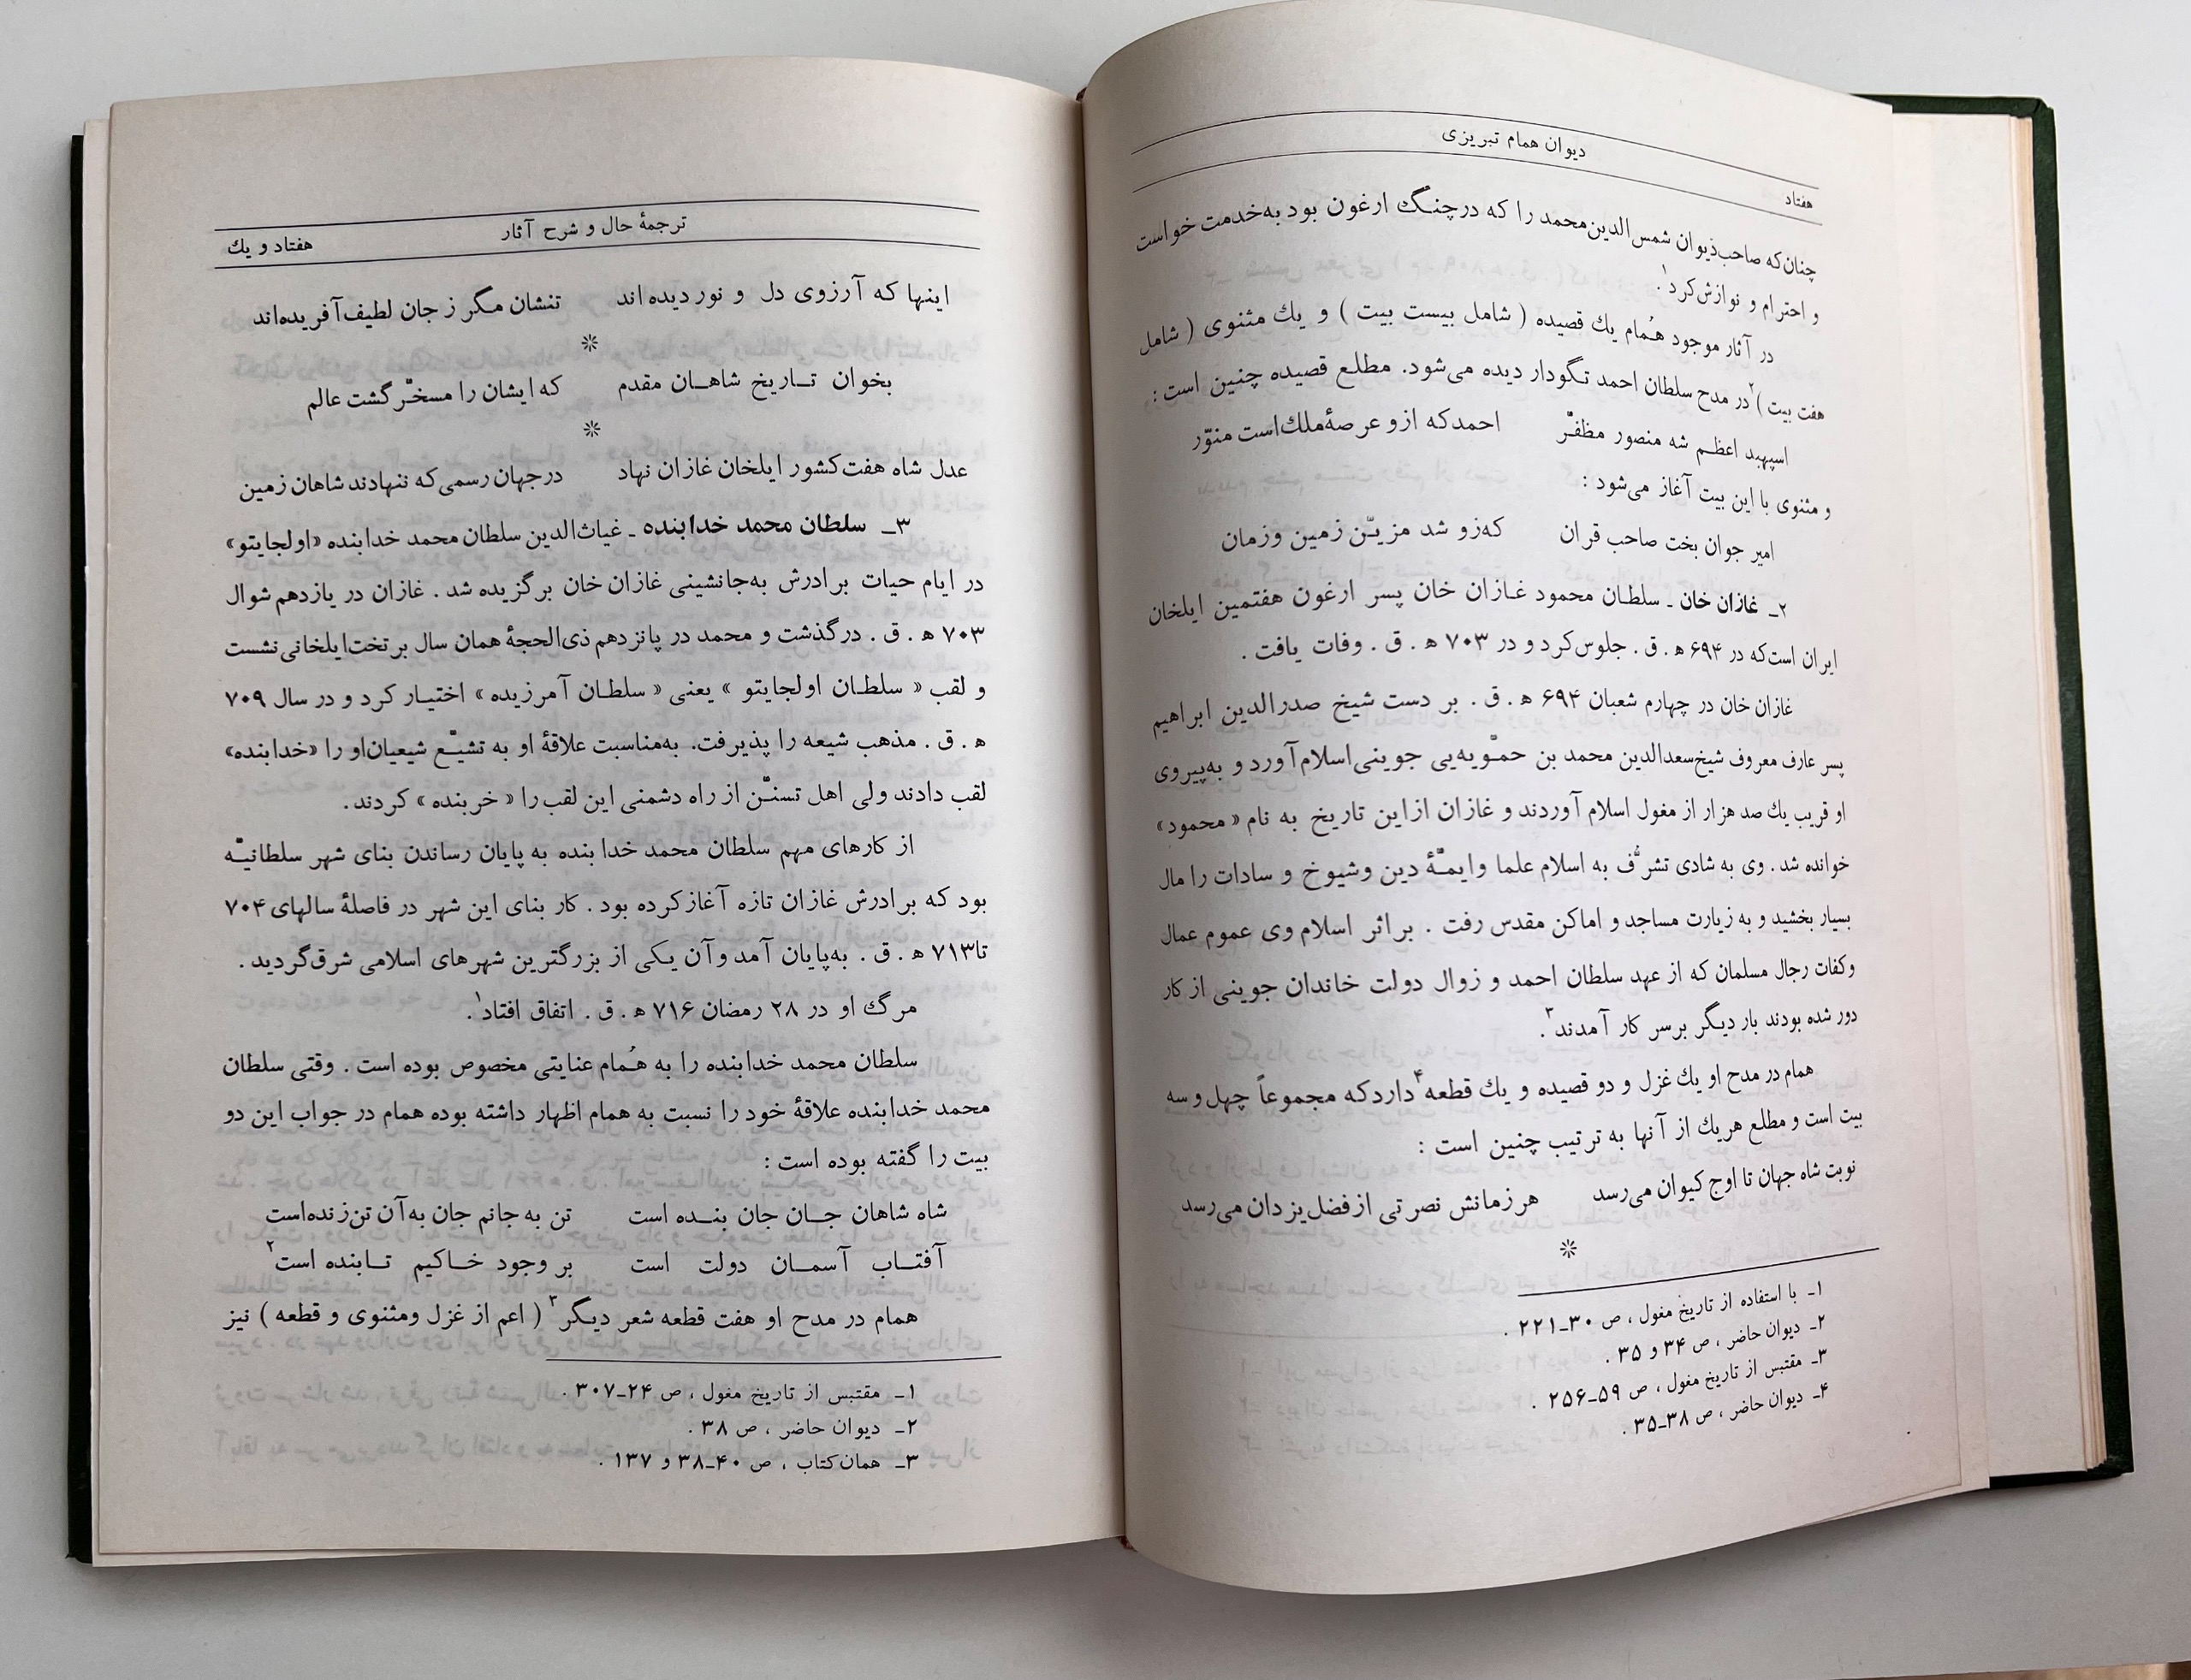 دیوان همام تبریزی
هفتاد
چنان‌که صاحب‌دیوان شمس‌الدین‌محمد را که در چنگ ارغون بود به‌خدمت خواست
و احترام و نوازش کرد۱.
در آثار موجود هُمام یك قصیده ( شامل بیست بیت ) و یك مثنوی ( شامل
هفت بیت )۲ در مدح سلطان احمد تگودار دیده می‌شود. مطلع قصیده چنین است :
اسپهبد اعظم شه منصور مظفّر احمد که ازو عرصهٔ ملك است منوّر
و مثنوی با این بیت آغاز می‌شود :
امیر جوان بخت صاحب قران که‌زو شد مزیّن زمین و زمان
۲ـ غازان خان ـ سلطان محمود غازان خان پسر ارغون هفتمین ایلخان
ایران است‌که در ۶۹۴ ه . ق . جلوس‌کرد و در ۷۰۳ ه . ق . وفات یافت .
غازان خان در چهارم شعبان ۶۹۴ ه . ق . بر دست شیخ صدرالدین ابراهیم
پسر عارف معروف شیخ‌سعدالدین محمد بن حمّویه‌یی جوینی‌اسلام‌آورد و به‌پیروی
او قریب یك صد هزار از مغول اسلام آوردند و غازان ازاین تاریخ به نام « محمود»
خوانده شد . وی به شادی تشرّف به اسلام علما وایمّهٔ دین وشیوخ و سادات را مال
بسیار بخشید و به زیارت مساجد و اماکن مقدس رفت . براثر اسلام وی عموم عمال
وکفات رجال مسلمان که از عهد سلطان احمد و زوال دولت خاندان جوینی از کار
دور شده بودند بار دیگر برسر کار آمدند۳.
همام در مدح او یك غزل و دو قصیده و یك قطعه۴ دارد که مجموعاً چهل و سه
بیت است و مطلع هریك از آنها به ترتیب چنین است :
نوبت شاه جهان تا اوج کیوان می‌رسد هر زمانش نصرتی از فضل یزدان می‌رسد
❊
۱ـ با استفاده از تاریخ مغول ، ص ۳۰ـ۲۲۱ .
۲ـ دیوان حاضر ، ص ۳۴ و ۳۵ .
۳ـ مقتبس از تاریخ مغول ، ص ۵۹ـ۲۵۶ .
۴ـ دیوان حاضر ، ص ۳۸ـ۳۵ .
ترجمهٔ حال و شرح آثار
هفتاد و یك
اینها که آرزوی دل و نور دیده‌اند تنشان مگر ز جان لطیف‌آفریده‌اند
❊
بخوان تاریخ شاهان مقدم که ایشان را مسخّر گشت عالم
❊
عدل شاه هفت‌کشور ایلخان غازان نهاد درجهان رسمی‌که ننهادند شاهان زمین
۳ـ سلطان محمد خدابنده ـ غیاث‌الدین سلطان محمد خدابنده «اولجایتو»
در ایام حیات برادرش به‌جانشینی غازان خان برگزیده شد . غازان در یازدهم شوال
۷۰۳ ه . ق . درگذشت و محمد در پانزدهم ذی‌الحجهٔ همان سال برتخت‌ایلخانی‌نشست
و لقب « سلطان اولجایتو » یعنی « سلطان آمرزیده » اختیار کرد و در سال ۷۰۹
ه . ق . مذهب شیعه را پذیرفت. به‌مناسبت علاقهٔ او به تشیّع شیعیان‌او را «خدابنده»
لقب دادند ولی اهل تسنّن از راه دشمنی این لقب را « خربنده » کردند.
از کارهای مهم سلطان محمد خدابنده به پایان رساندن بنای شهر سلطانیّه
بود که برادرش غازان تازه آغازکرده بود . کار بنای این شهر در فاصلهٔ سالهای ۷۰۴
تا۷۱۳ ه . ق . به‌پایان آمد وآن یکی از بزرگترین شهرهای اسلامی شرق‌گردید .
مرگ او در ۲۸ رمضان ۷۱۶ ه . ق . اتفاق افتاد۱.
سلطان محمد خدابنده را به هُمام عنایتی مخصوص بوده است . وقتی سلطان
محمد خدابنده علاقهٔ خود را نسبت به همام اظهار داشته بوده همام در جواب این دو
بیت را گفته بوده است :
شاه شاهان جان جان بنده است تن به جانم جان به‌آن تن‌زنده‌است
آفتاب آسمان دولت است بر وجود خاکیم تابنده است۲
همام در مدح او هفت قطعه شعر دیگر۳ ( اعم از غزل ومثنوی و قطعه ) نیز
۱ـ مقتبس از تاریخ مغول ، ص ۲۴ـ۳۰۷ .
۲ـ دیوان حاضر ، ص ۳۸ .
۳ـ همان‌کتاب ، ص ۴۰ـ۳۸ و ۱۳۷ .